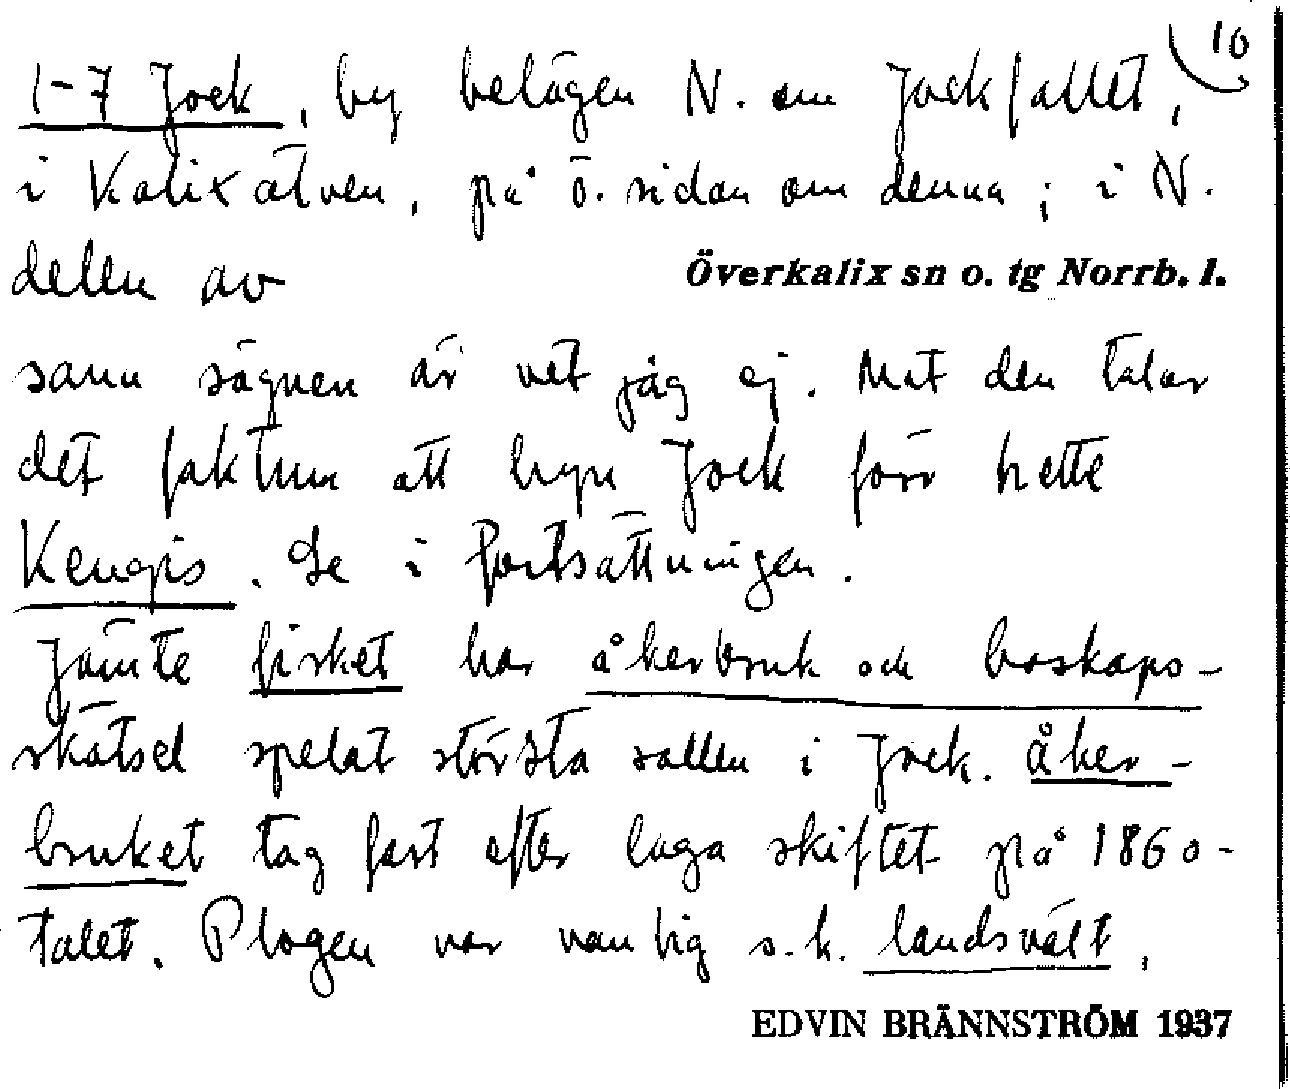 10
1-7 Jock, by belägen N. om Jockfallet,
i Kalixälven, på ö. sidan om denna; i N.
delen av
Överkalix sn o. tg Norrb. l.
sann sägnen är vet jag ej. Mot den talar
det faktum att byn Jock förr hette
Kengis. Se i fortsättningen.
Jämte fisket har åkerbruk och boskaps-
skötsel spelat största rollen i Jock. Åker-
bruket tag fart efter laga skiftet på 1860-
talet. Plogen var vanlig s.k. landsvält,
EDVIN BRÄNNSTRÖM 1937